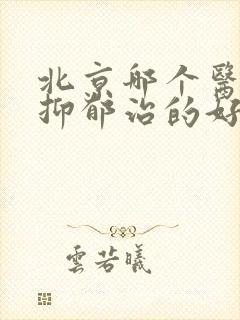 北京哪个醫
抑郁治的好
雲若曦